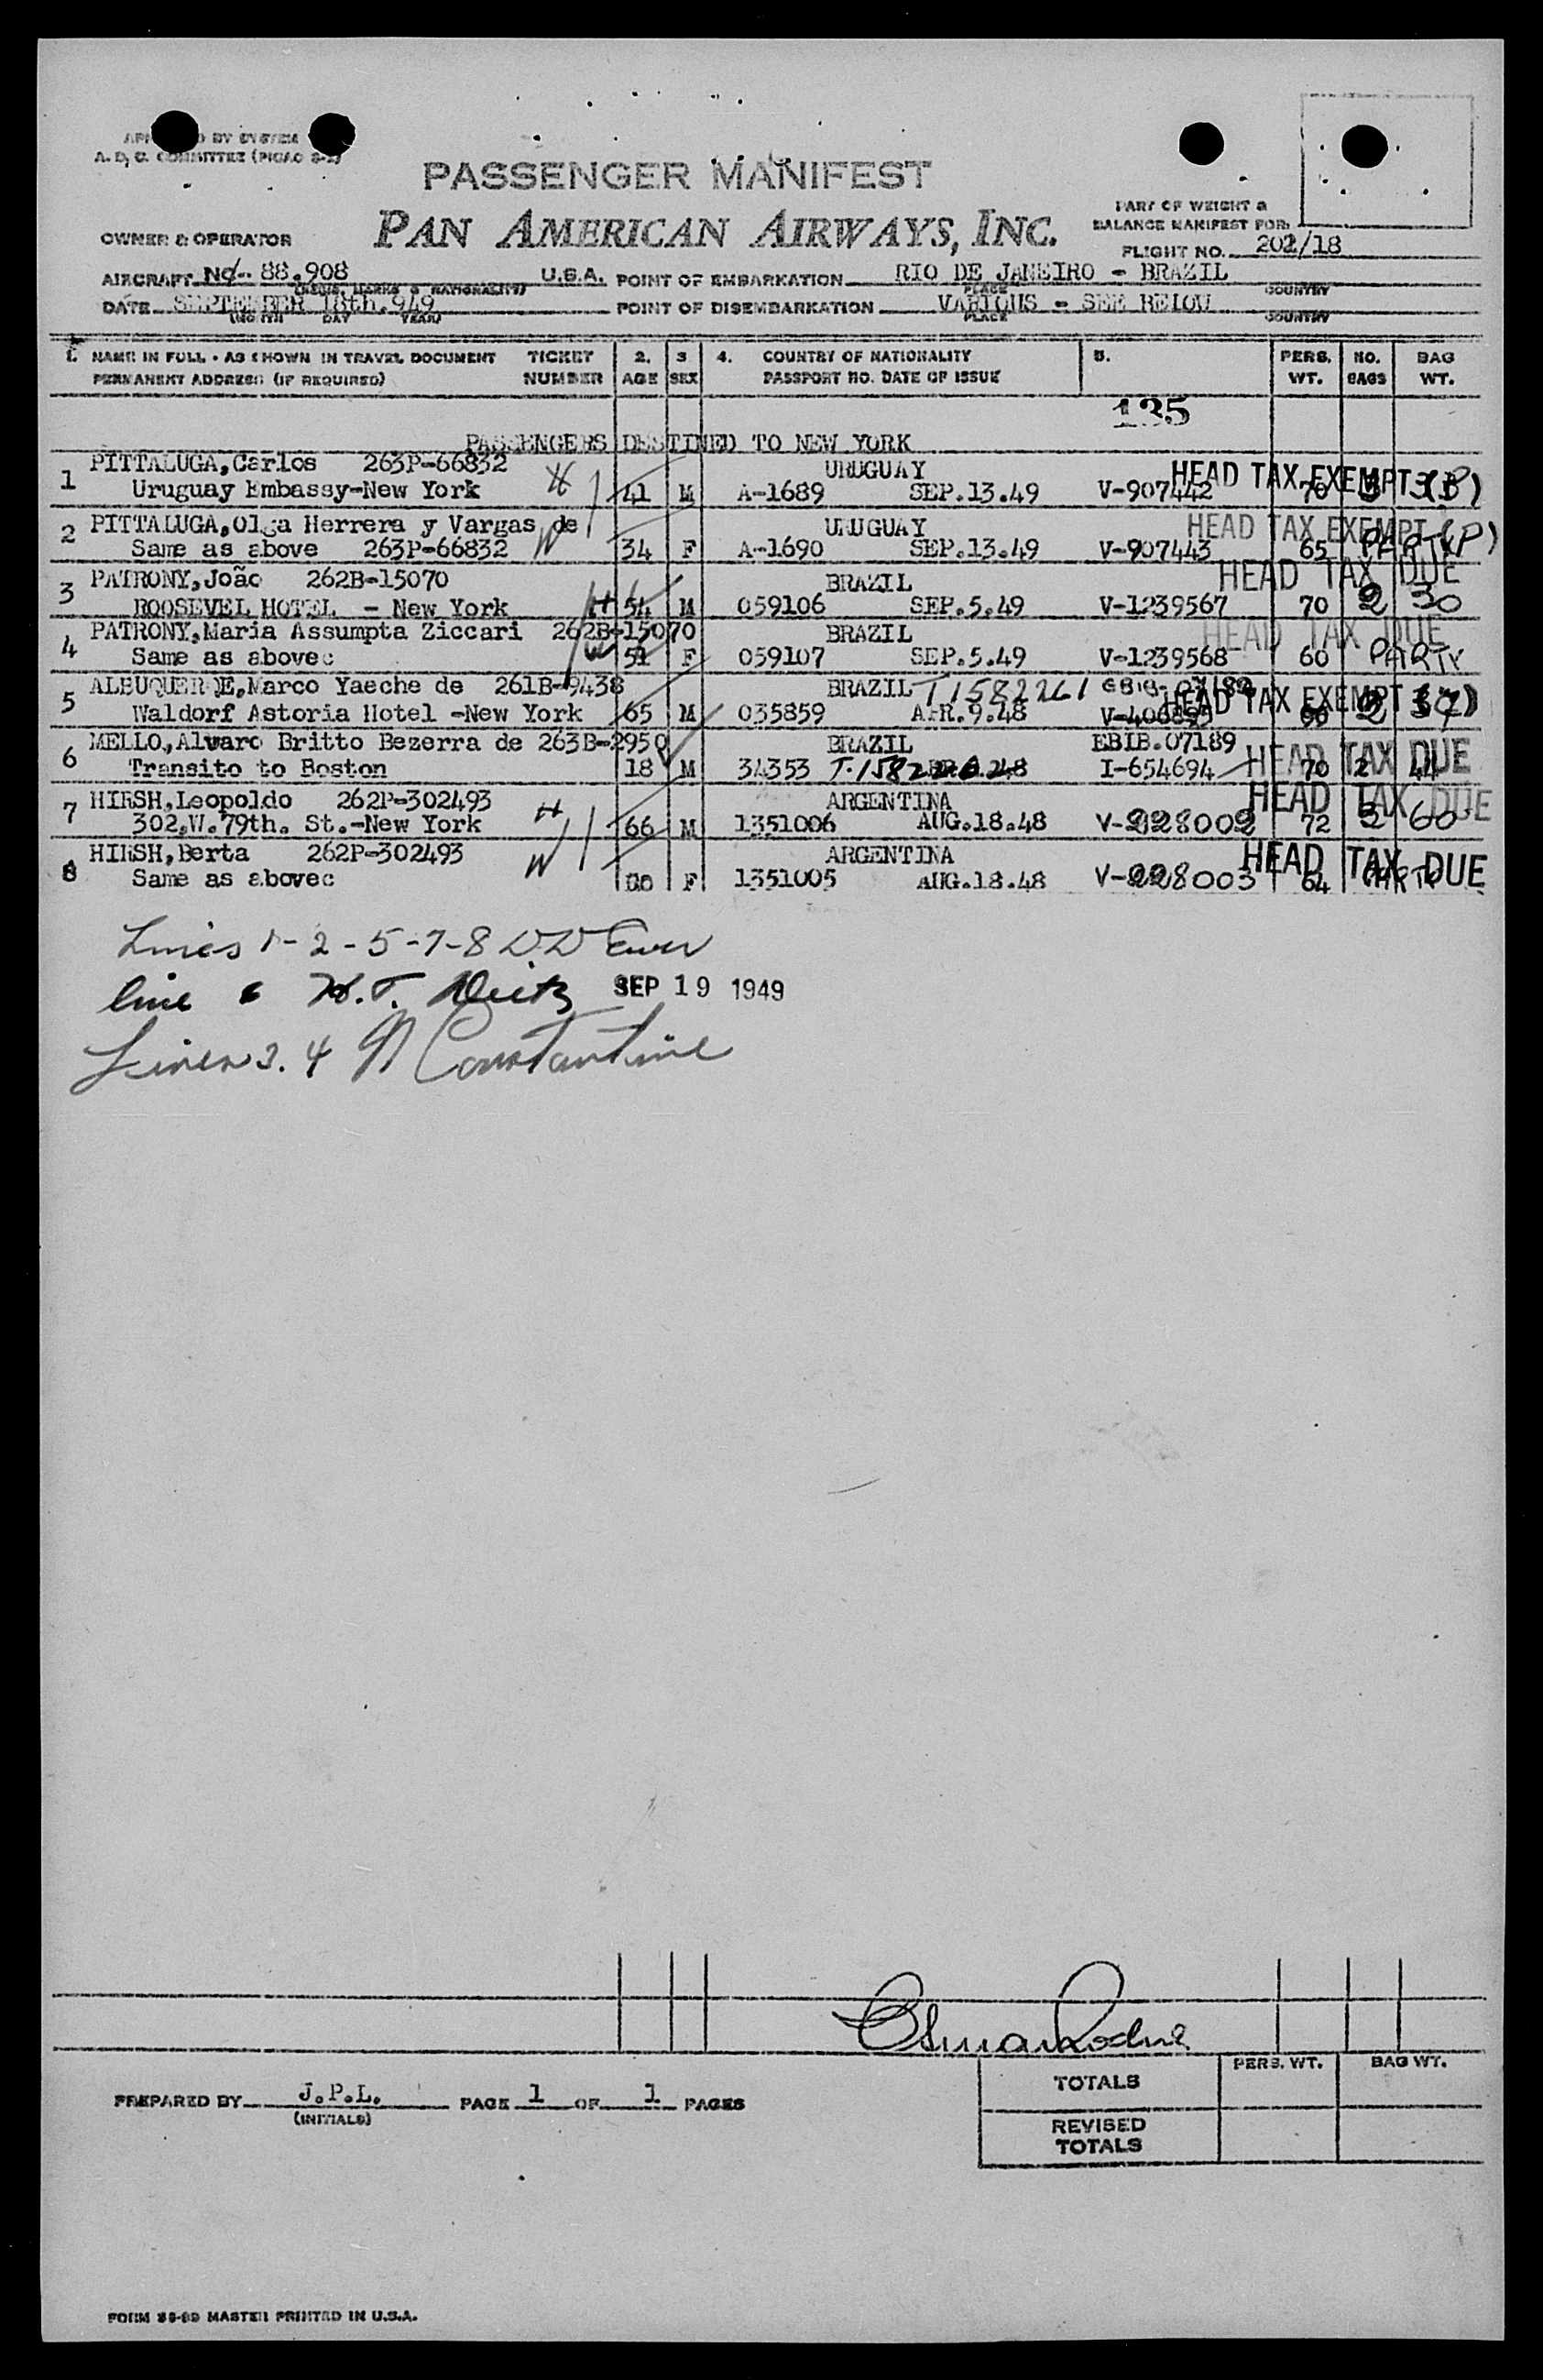 BY SYSTEM
A. D. C. COMMITTEE (PICAO
PASSENGER MANIFEST
PAN AMERICAN AIRWAYS, INC.
OWNER & OPERATOR
PART OF WEIGHT &
BALANCE MANIFEST FOR:
FLIGHT NO. 202/18
AIRCRAFT NC-. 88.908 U.S.A. POINT OF EMBARKATION RIO DE JANEIRO - BRAZIL
PLACE COUNTRY
DATE SEPTEMBER 18th.949 POINT OF DISEMBARKATION VARIOUS - SEE BELOW
DAY YEAR) PLACE COUNTRY
NAME IN FULL - AS SHOWN IN TRAVEL DOCUMENT TICKET 2. 3 4. COUNTRY OF NATIONALITY 5. PERS. NO. BAG
PERMANENT ADDRESS (IF REQUIRED) NUMBER AGE SEX PASSPORT NO. DATE OF ISSUE WT. BAGS WT.
135
PASSENGERS DESTINED TO NEW YORK
1 PITTALUGA,Carlos 263P-66832 URUGUAY HEAD TAX EXEMPT
Uruguay Embassy-New York 41 M A-1689 SEP.13.49 V-907442 70
2 PITTALUGA,Olga Herrera y Vargas de URUGUAY HEAD TAX EXEMPT
Same as above 263P-66832 34 F A-1690 SEP.13.49 V-907443 65 PARTY
3 PATRONY,João 262B-15070 BRAZIL HEAD TAX DUE
ROOSEVEL HOTEL - New York 54 M 059106 SEP.5.49 V-1239567 70 2 30
4 PATRONY,Maria Assumpta Ziccari 262B-15070 BRAZIL HEAD TAX DUE
Same as abovec 51 F 059107 SEP.5.49 V-1239568 60 PARTY
5 ALBUQUERQUE,Marco Yaeche de 261B-9438 BRAZIL T1582261 HEAD TAX EXEMPT
Waldorf Astoria Hotel -New York 65 M 035859 APR.9.48
6 MELLO,Alvaro Britto Bezerra de 263B-2950 BRAZIL EBIB.07189 HEAD TAX DUE
Transito to Boston 18 M 34353 I-654694 70 2 44
7 HIRSH,Leopoldo 262P-302493 ARGENTINA HEAD TAX DUE
302,W.79th. St.-New York 66 M 1351006 AUG.18.48 V-228002 72 2 60
8 HIRSH,Berta 262P-302493 ARGENTINA HEAD TAX DUE
Same as abovec F 1351005 AUG.18.48 V-228003 64 PARTY
Lines 1-2-5-7-8
line 6 SEP 19 1949
Lines 3. 4 Constantine
TOTALS PERS. WT. BAG WT.
PREPARED BY J.P.L. PAGE 1 OF 1 PAGES
(INITIALS)
REVISED
TOTALS
MASTER PRINTED IN U.S.A.